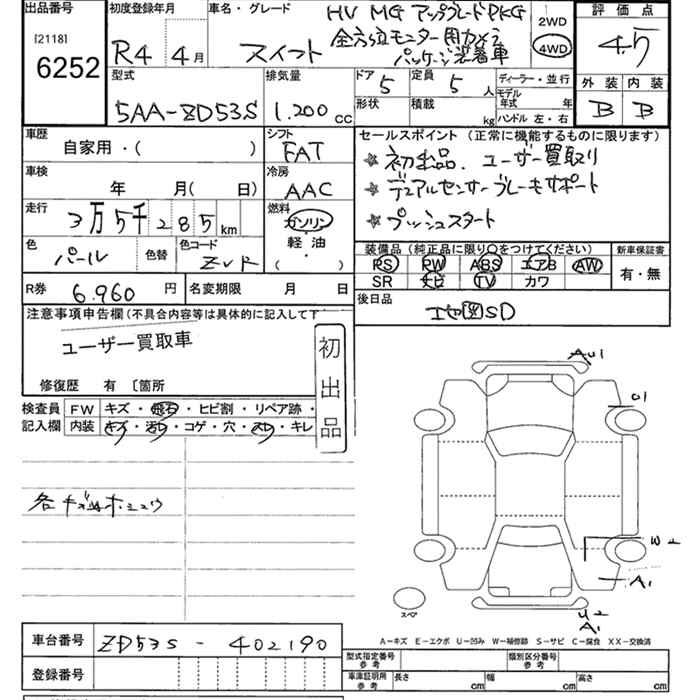 出品番号 初度登録年月 車名・グレード HV MG アップグレードPKG 2WD 評価点
[2118] 全方位モニター用カメラ 4WD 4.5
6252 R4 4月 スイフト パッケージ装着車
型式 排気量 ドア 定員 ディーラー・並行 外装 内装
5 5人 モデル年式 年
5AA-ZD53S 1.200cc 形状 積載 kg ハンドル 左・右 B B
車歴 シフト セールスポイント (正常に機能するものに限ります)
自家用・( ) FAT ★初出品. ユーザー買取り
車検 冷房 ★デュアルセンサーブレーキサポート
年 月( 日) AAC
走行 燃料 ★プッシュスタート
3万5千285km ガソリン
色 色替 色コード 軽油 装備品(純正品に限り○をつけてください) 新車保証書
パール ZVR ( ) RS RW ABS エアB AW 有・無
SR ナビ TV カワ
R券 6.960円 名変期限 月 日 後日品
注意事項申告欄(不具合内容等は具体的に記入して下 地図SD
ユーザー買取車
初出品
修復歴 有 〔箇所
検査員 FW キズ・飛石・ヒビ割・リペア跡・
記入欄 内装 キズ・汚レ・コゲ・穴・スレ・キレ
各キズ凹ホシュウ
AU1
01
W2
A1
スペア
U2
A1
A-キズ E-エクボ U-凹み W-補修跡 S-サビ C-腐食 XX-交換済
車台番号 ZD53S-402190
型式指定番号 参考 類別区分番号 参考
登録番号 車庫証明用 参考 長さ cm 幅 cm 高さ cm